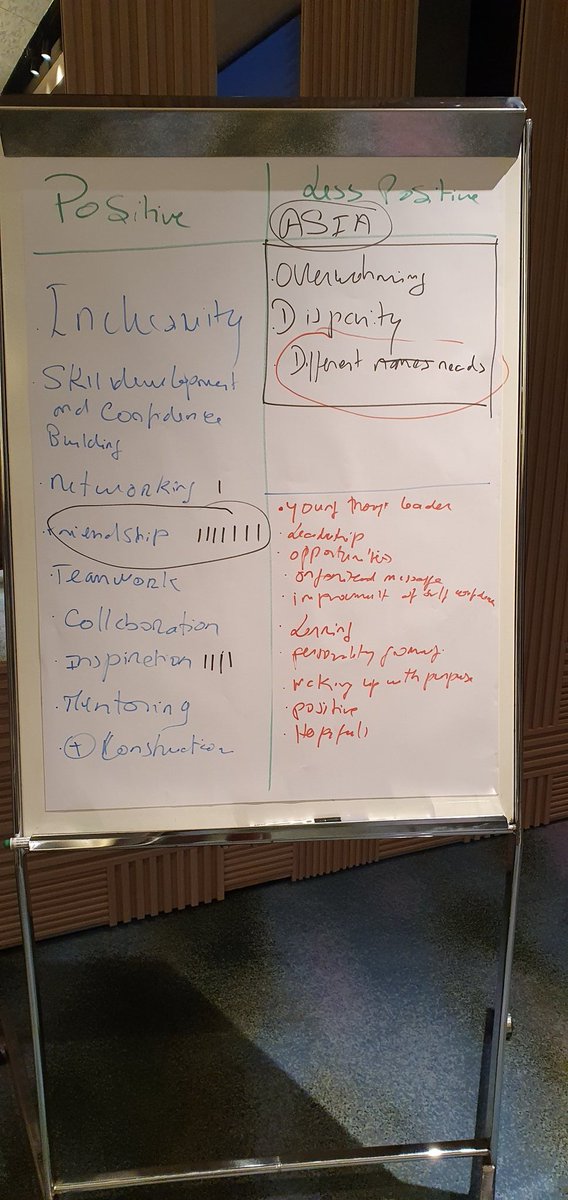 Positive
· Inclusivity
· Skill development
and Confidence
Building
· Networking |
· Friendship |||||||
· Teamwork
· Collaboration
· Inspiration ||||
· Mentoring
· + Construction
Less Positive
ASIA
· Overwhelming
· Disparity
· Different needs
· Young leader
· Leadership
· opportunities
· organized message
· improvement of self confidence
· Learning
· personality
· waking up with purpose
· positive
· Hopeful